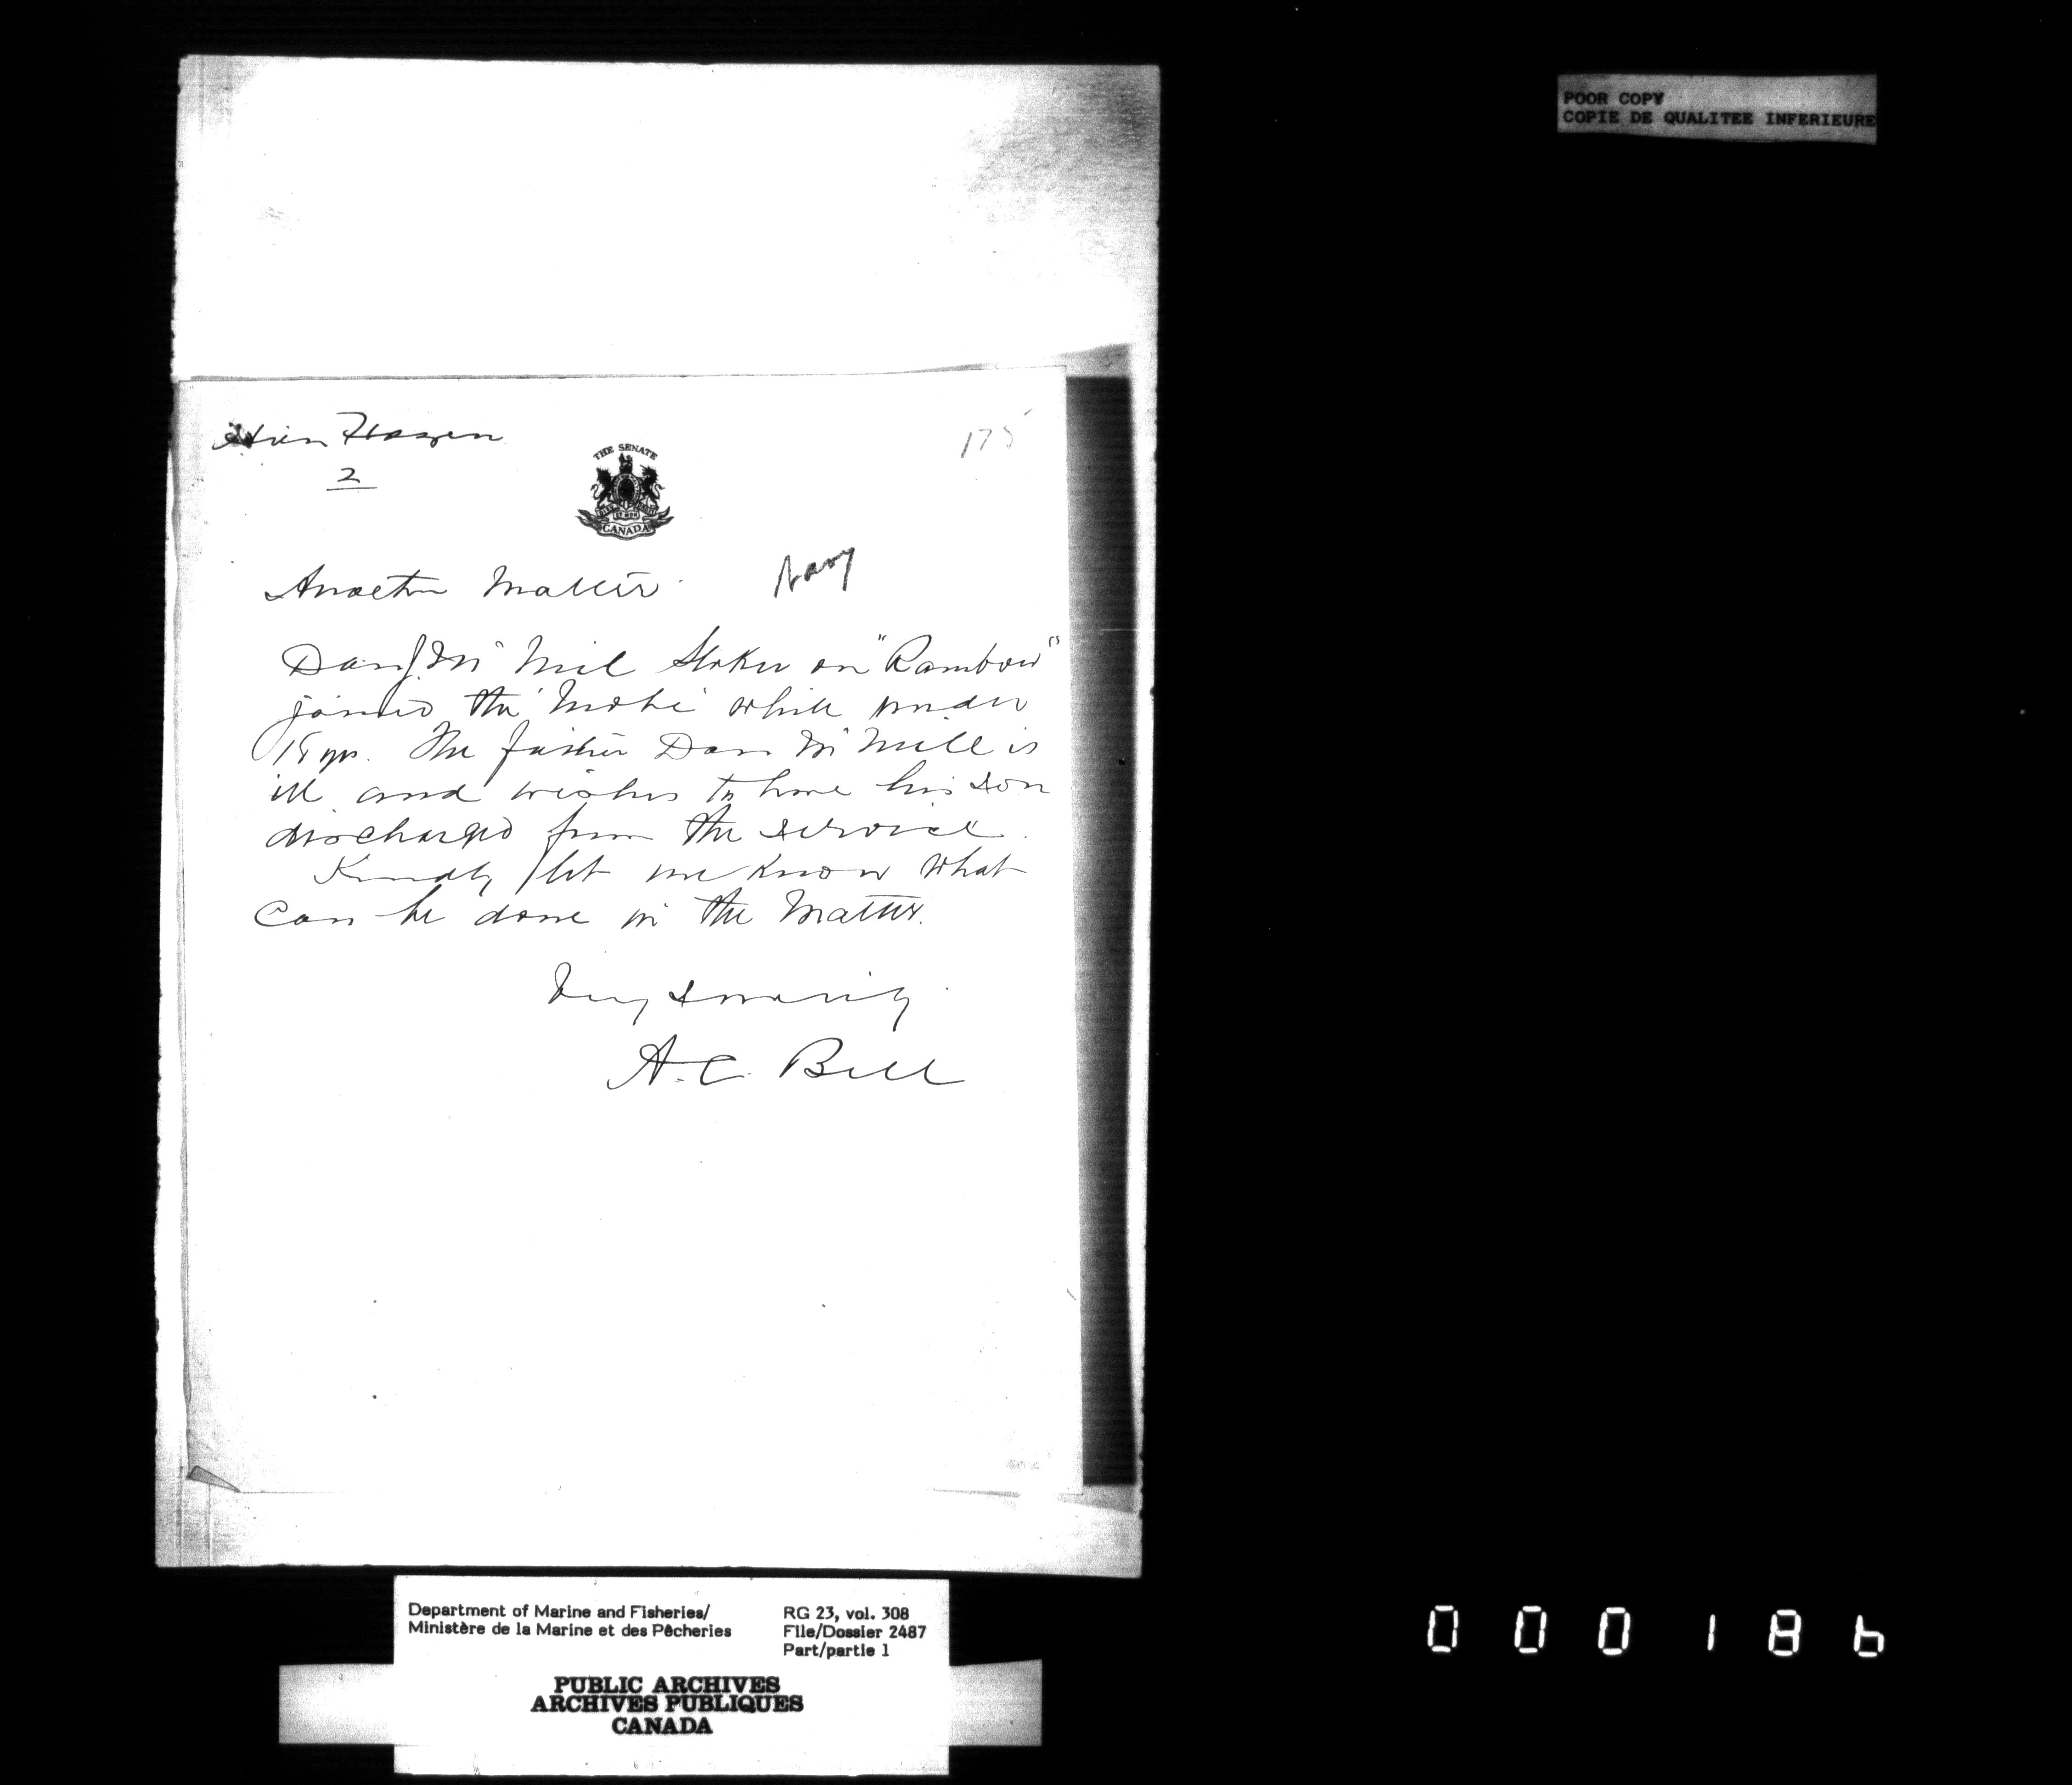 POOR COPY
COPIE DE QUALITEE INFERIEURE
Hon Hazen
2
175
THE SENATE
CANADA
Navy
Another Matter.
Dan J. Mc Neil Stoker on "Rainbow"
joined the Niobe while under
18 yrs. The father Dan Mc Neill is
ill and wishes to have his son
discharged from the service.
Kindly let me know what
can be done in the matter.
Very Sincerely
A. C. Bell
Department of Marine and Fisheries/
Ministère de la Marine et des Pêcheries
RG 23, vol. 308
File/Dossier 2487
Part/partie 1
PUBLIC ARCHIVES
ARCHIVES PUBLIQUES
CANADA
000186